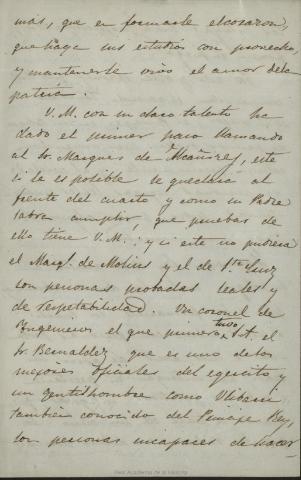 más, que en formarle el corazon,
que haga sus estudios con provecho,
y mantenerle vivo el amor de la
patria.
V. M. con su claro talento ha
dado el primer paso llamando
al Sr. Marques de Alcañices, este
si le es posible se quedará al
frente del cuarto y como un Padre
sabrá cumplir, que pruebas de
ello tiene V. M.: y si este no pudiera
el Marq.s de Molins y el de S.ta Cruz
son personas probadas leales y
de respetabilidad. Un coronel de
Ingenieros el que primero tuvo S. A. el
Sr. Bernaldez que es uno de los
mejores oficiales del egercito y
un gentilhombre como Ulibarri
tambien conocido del Principe Rey,
son personas incapaces de hacer
Real Academia de la Historia